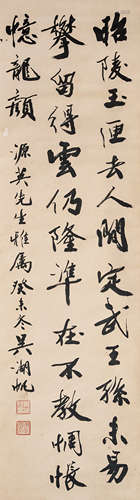 昭陵玉匣去人間定武王孫未易
攀留得雲仍隆準在不教惆悵
憶龍顏
源英先生雅屬癸未冬吳湖帆